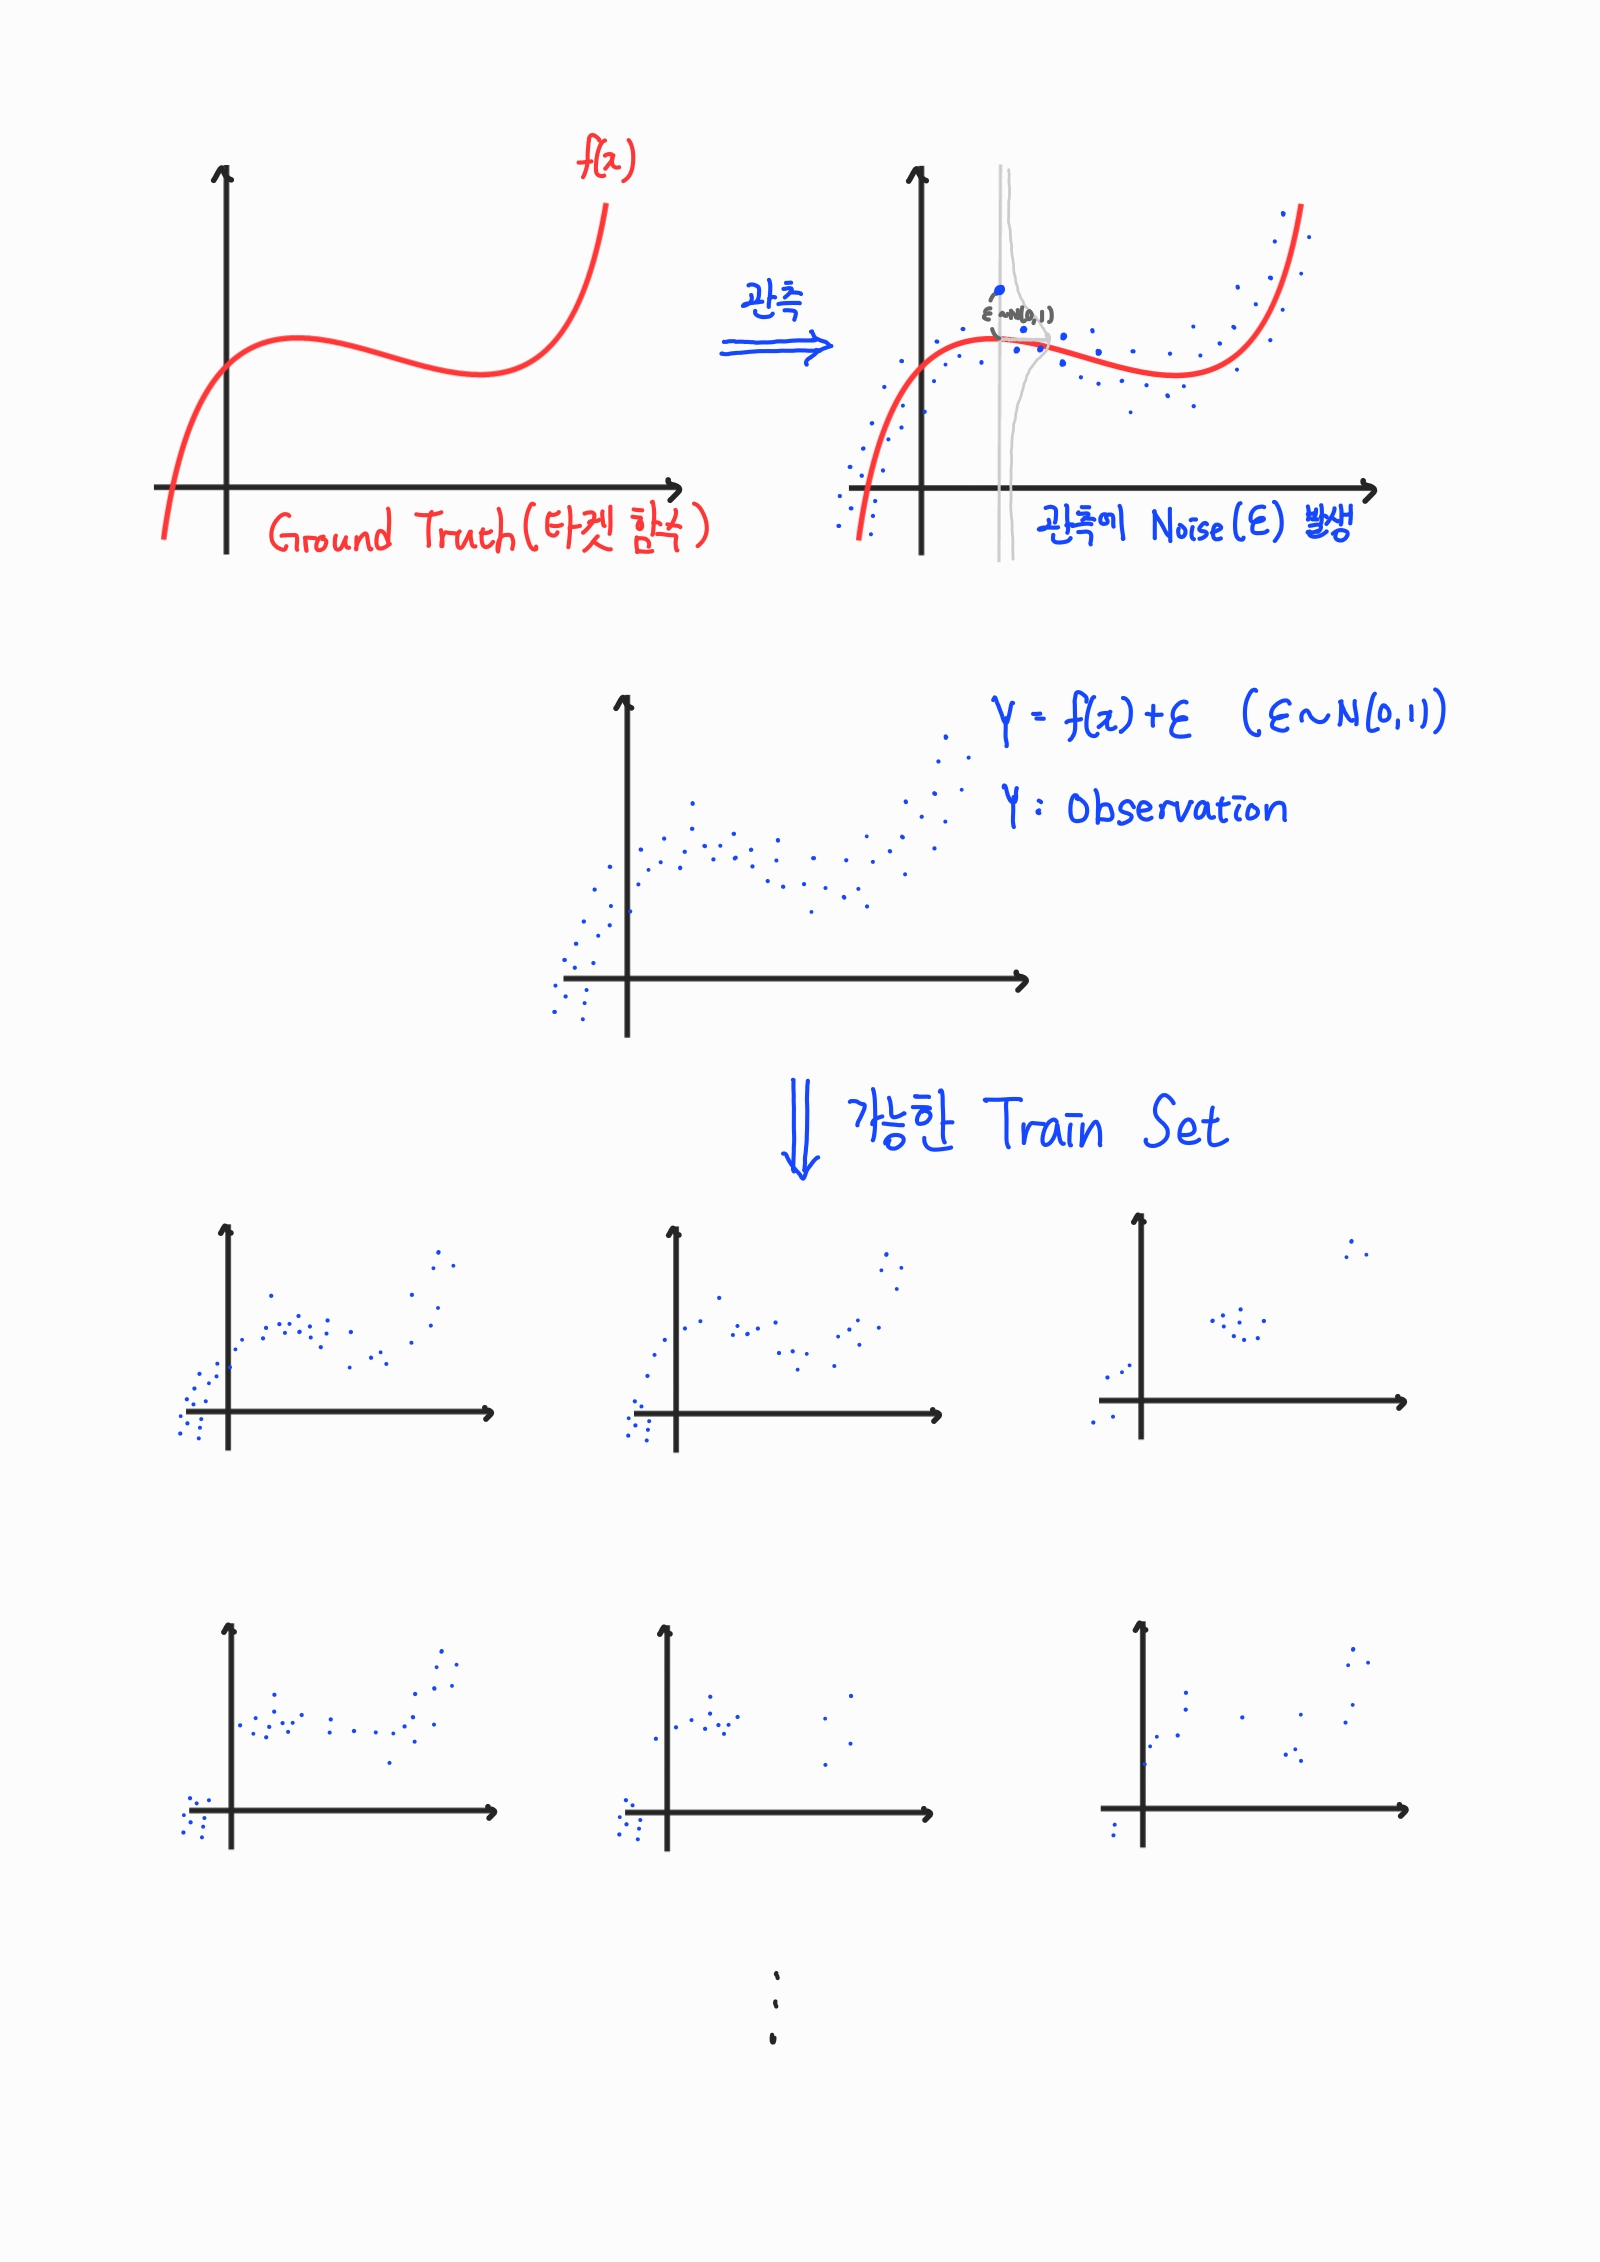 f(x)
관측
ε~N(0,1)
Ground Truth(타겟 함수)
관측에 Noise(ε) 발생
Y = f(x)+ε (ε~N(0,1))
Y: Observation
가능한 Train Set